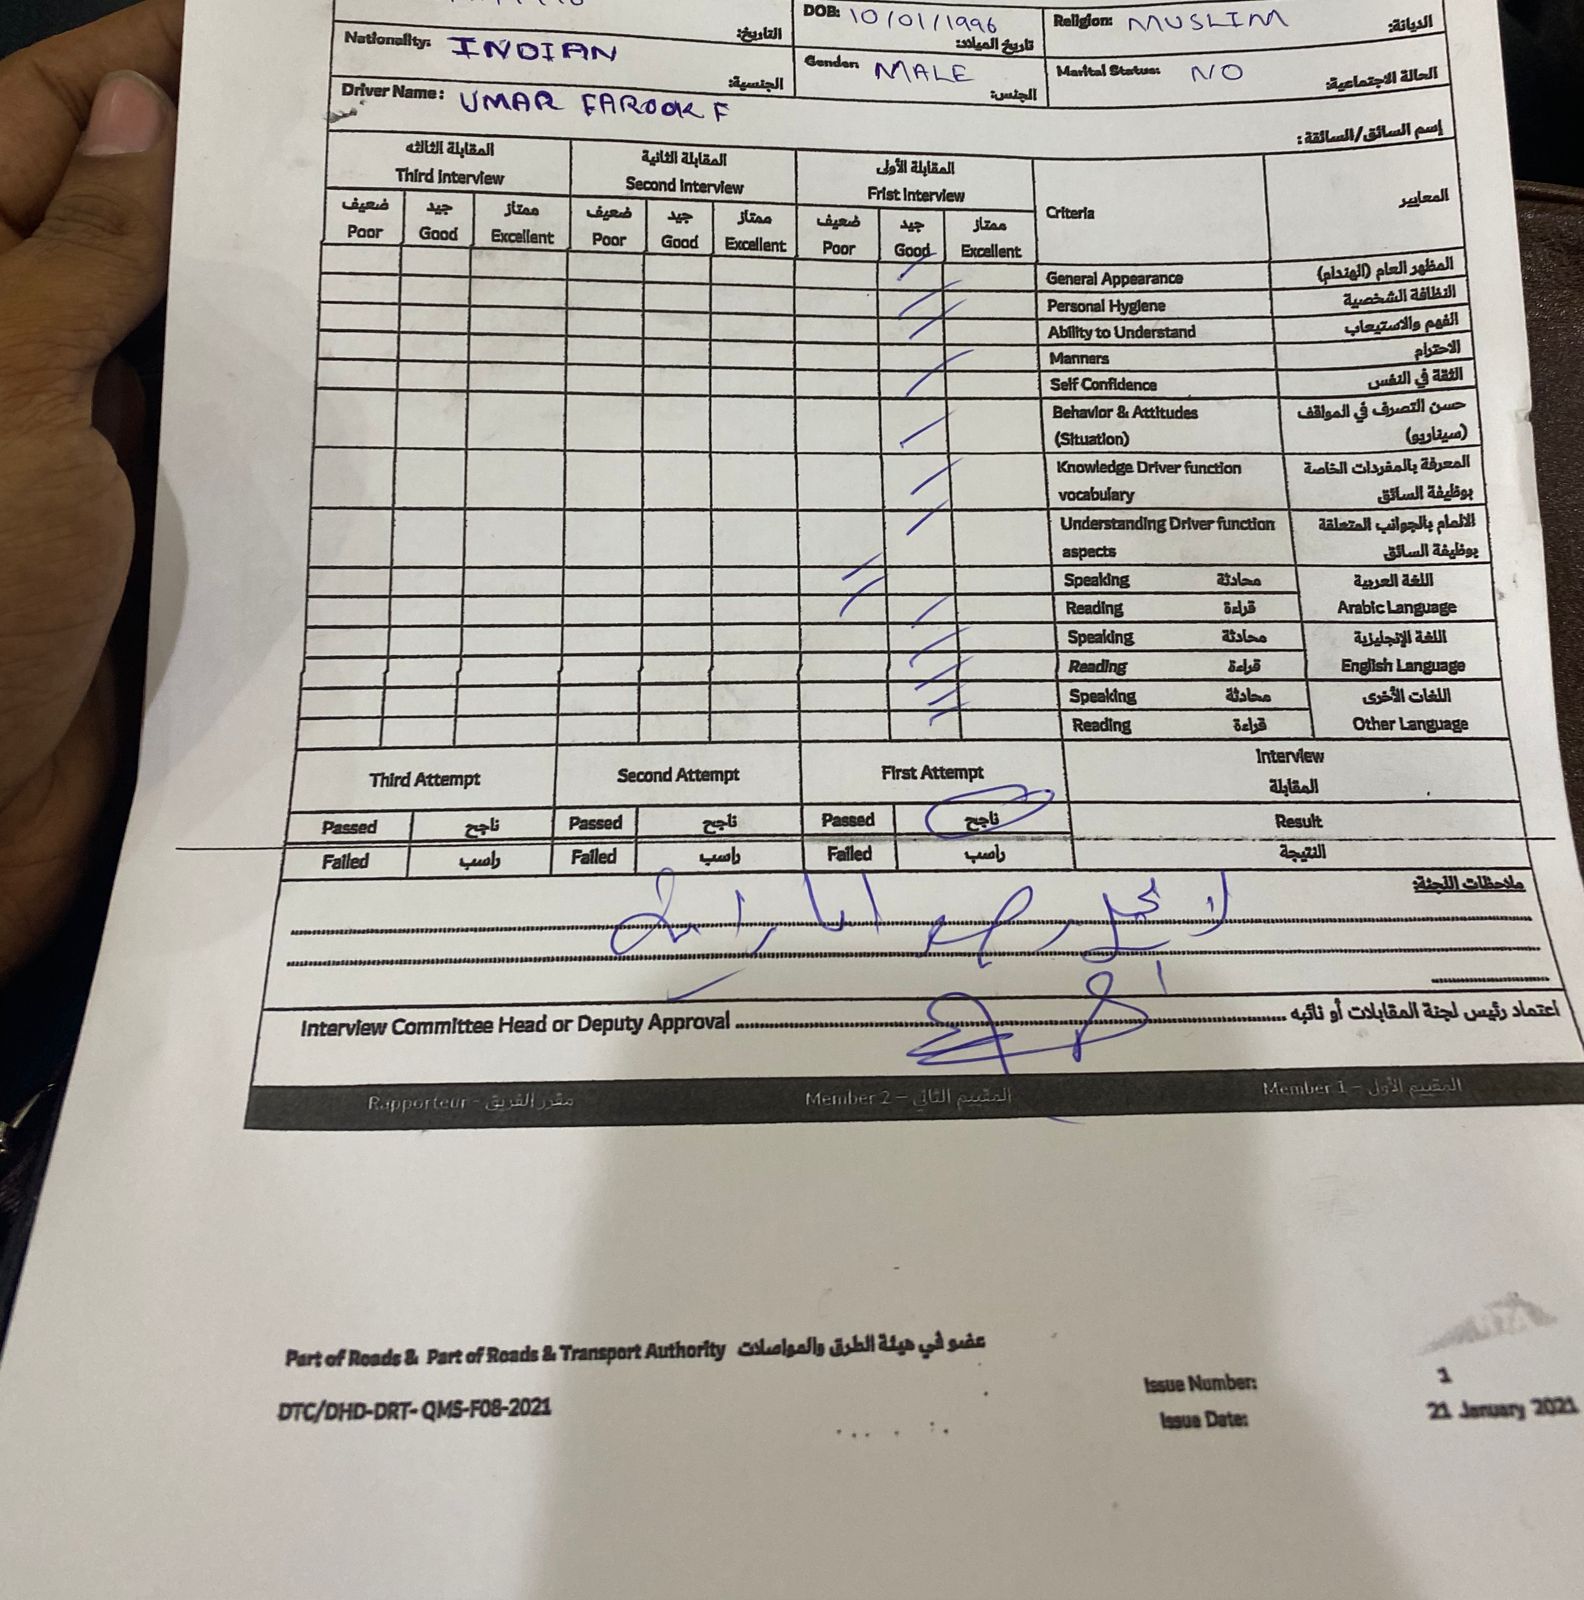 DOB: 10/01/1996 تاريخ الميلاد: Religion: MUSLIM الديانة:
Nationality: INDIAN التاريخ:
Gender: MALE الجنس: Marital Status: NO الحالة الاجتماعية:
الجنسية:
Driver Name: UMAR FAROOK F إسم السائق/السائقة:
المقابلة الثالثه المقابلة الثانية المقابلة الأولى
Third Interview Second Interview Frist Interview Criteria المعايير
ضعيف جيد ممتاز ضعيف جيد ممتاز ضعيف جيد ممتاز
Poor Good Excellent Poor Good Excellent Poor Good Excellent
General Appearance المظهر العام (الهندام)
Personal Hygiene النظافة الشخصية
Ability to Understand الفهم والاستيعاب
Manners الاحترام
Self Confidence الثقة في النفس
Behavior & Attitudes حسن التصرف في المواقف
(Situation) (سيناريو)
Knowledge Driver function المعرفة بالمفردات الخاصة
vocabulary بوظيفة السائق
Understanding Driver function الالمام بالجوانب المتعلقة
aspects بوظيفة السائق
Speaking محادثة اللغة العربية
Reading قراءة Arabic Language
Speaking محادثة اللغة الإنجليزية
Reading قراءة English Language
Speaking محادثة اللغات الأخرى
Reading قراءة Other Language
Third Attempt Second Attempt First Attempt Interview
المقابلة
Passed ناجح Passed ناجح Passed ناجح Result
Failed راسب Failed راسب Failed راسب النتيجة
ملاحظات اللجنة:
Interview Committee Head or Deputy Approval اعتماد رئيس لجنة المقابلات أو نائبه
Rapporteur - مقرر الفريق Member 2 – المقييم الثاني Member 1 – المقييم الأول
Part of Roads & Part of Roads & Transport Authority عضو في هيئة الطرق والمواصلات
Issue Number: 1
DTC/DHD-DRT- QMS-F08-2021
Issue Date: 21 January 2021